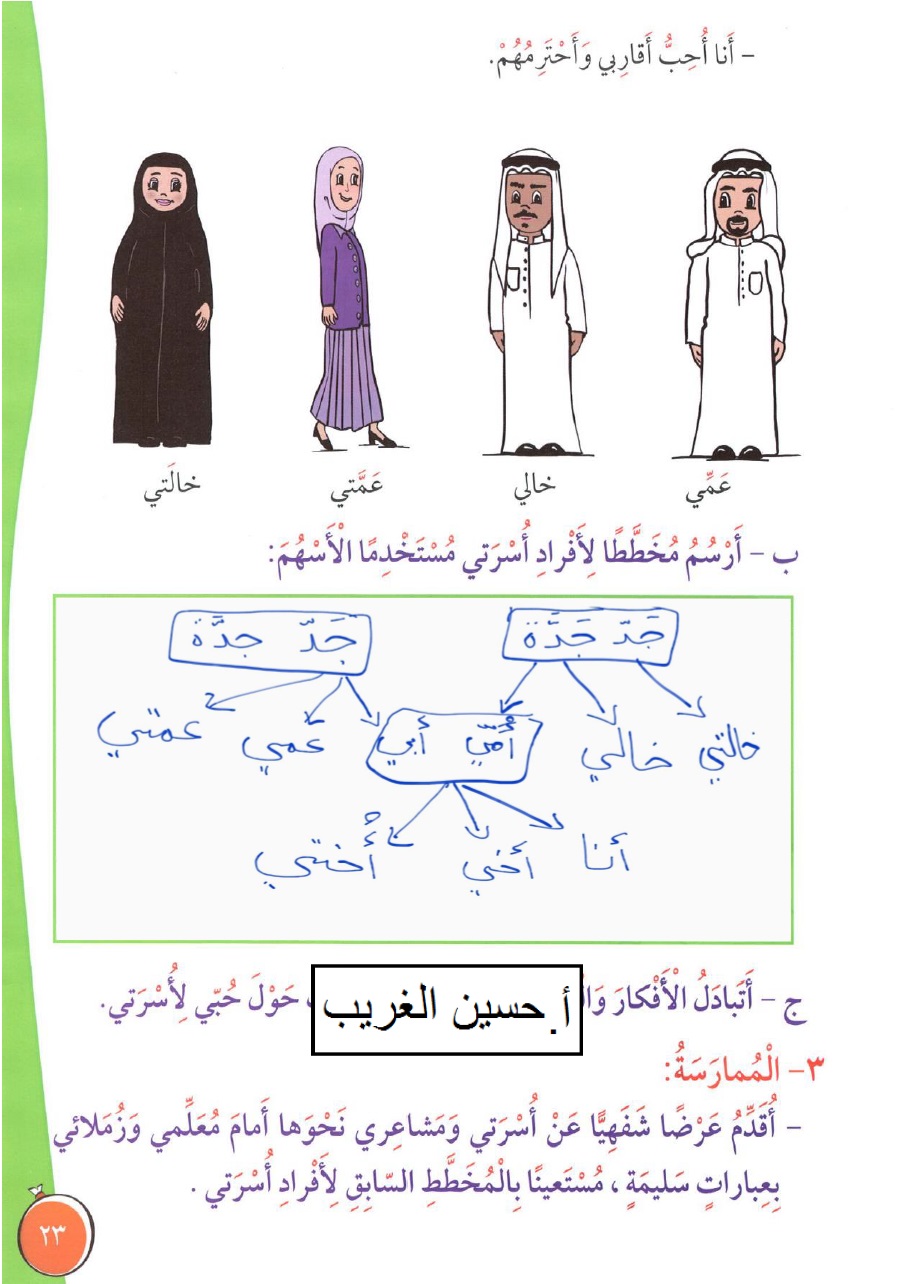 – أَنا أُحِبُّ أَقارِبي وَأَحْتَرِمُهُمْ.
عَمِّي خالي عَمَّتي خالَتي
ب – أَرْسُمُ مُخَطَّطًا لِأَفْرادِ أُسْرَتي مُسْتَخْدِمًا الْأَسْهُمَ:
جَدّ جَدَّة جَدّ جدَّة
خالتي خالي أُمّي أبي عمي عمتي
أنا أخي أُختي
ج – أَتَبادَلُ الْأَفْكارَ حَوْلَ حُبّي لِأُسْرَتي.
أ. حسين الغريب
٣– الْمُمارَسَةُ:
– أُقَدِّمُ عَرْضًا شَفَهِيًّا عَنْ أُسْرَتي وَمَشاعِري نَحْوَها أَمامَ مُعَلِّمي وَزُمَلائي
بِعِباراتٍ سَليمَةٍ ، مُسْتَعينًا بِالْمُخَطَّطِ السّابِقِ لِأَفْرادِ أُسْرَتي .
٢٣